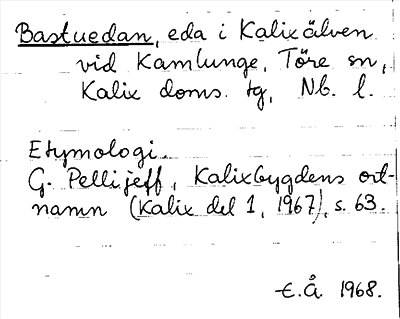 Bastuedan, eda i Kalixälven
vid Kamlunge, Töre sn,
Kalix doms. tg, Nb. l.
Etymologi.
G. Pellijeff, Kalixbygdens ort-
namn (Kalix del 1, 1967), s. 63.
E.Å. 1968.